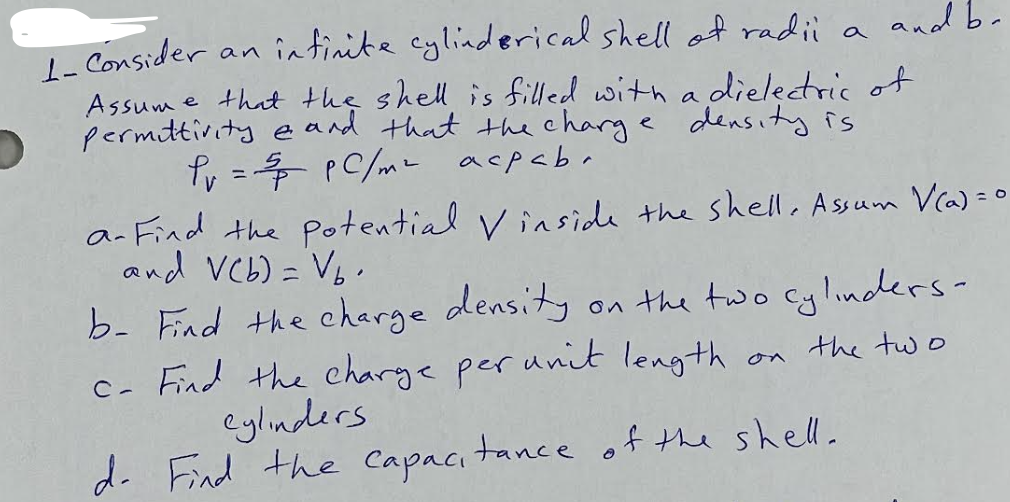 1- Consider an infinite cylinderical shell of radii a and b.
Assume that the shell is filled with a dielectric of
permittivity e and that the charge density is
ρv = 5/ρ pC/m² a<ρ<b.
a- Find the potential V inside the shell. Assum V(a)=0
and V(b) = Vb.
b- Find the charge density on the two cylinders-
c- Find the charge per unit length on the two
cylinders
d. Find the capacitance of the shell.